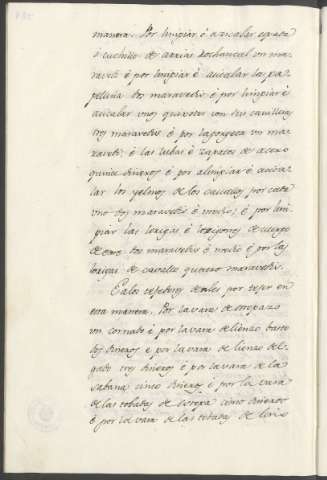 manera. Por limpiar é acicalar espada
ó cuchillo de arrias dochancal un ma-
ravedi é por limpiar é acicalar la ca-
pellina dos maravedis é por limpiar é
acicalar unos quixotes con sus canilleras
tres maravedis é por la gorgera un ma-
ravedi; é las lubas é zapatos de acero
quince dineros é por alimpiar é acica-
lar los yelmos de los caballos por cada
uno dos maravedis é medio; é por lim-
piar las lorigas é lorigones de cuerpo
de ome dos maravedis é medio é por las
lorigas de caballo quatro maravedis.
E a los texedores dales por texer en
esta manera. Por la vara de
un cornado é por la vara de lienzo basto
dos dineros é por la vara de lienzo del-
gado tres dineros é por la vara de la
sabana cinco dineros é por la vara
de las tobajas de estopa cinco dineros
é por la vara de las tobajas de lino